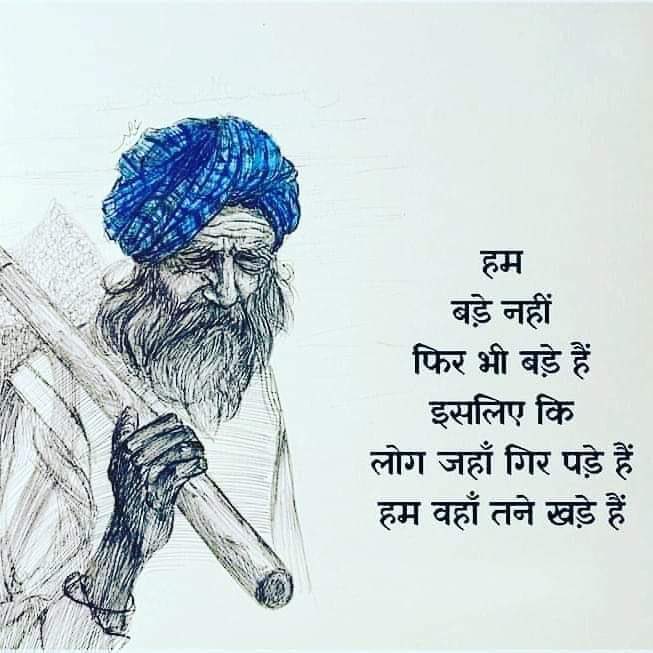 हम
बड़े नहीं
फिर भी बड़े हैं
इसलिए कि
लोग जहाँ गिर पड़े हैं
हम वहाँ तने खड़े हैं